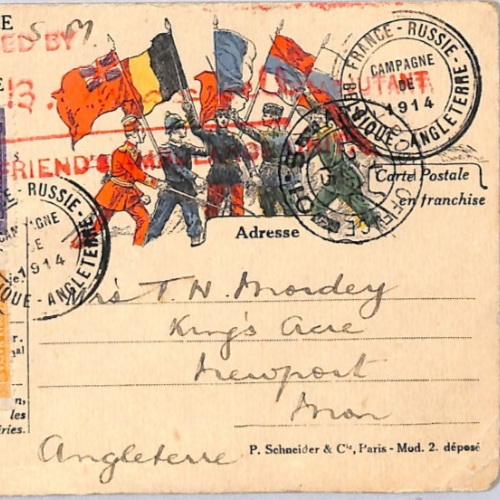 E
S. M.
ED BY
13
UTANT
FRIEND'S
FRANCE - RUSSIE -
BELGIQUE - ANGLETERRE
CAMPAGNE
DE
1914
Carte Postale
en franchise
RUSSIE -
QUE - ANGLETERRE
1914
Adresse
Mrs T. H. Mordey
King's Acre
Newport
Mon
Angleterre
n,
les
iries.
P. Schneider & Cie, Paris - Mod. 2. déposé